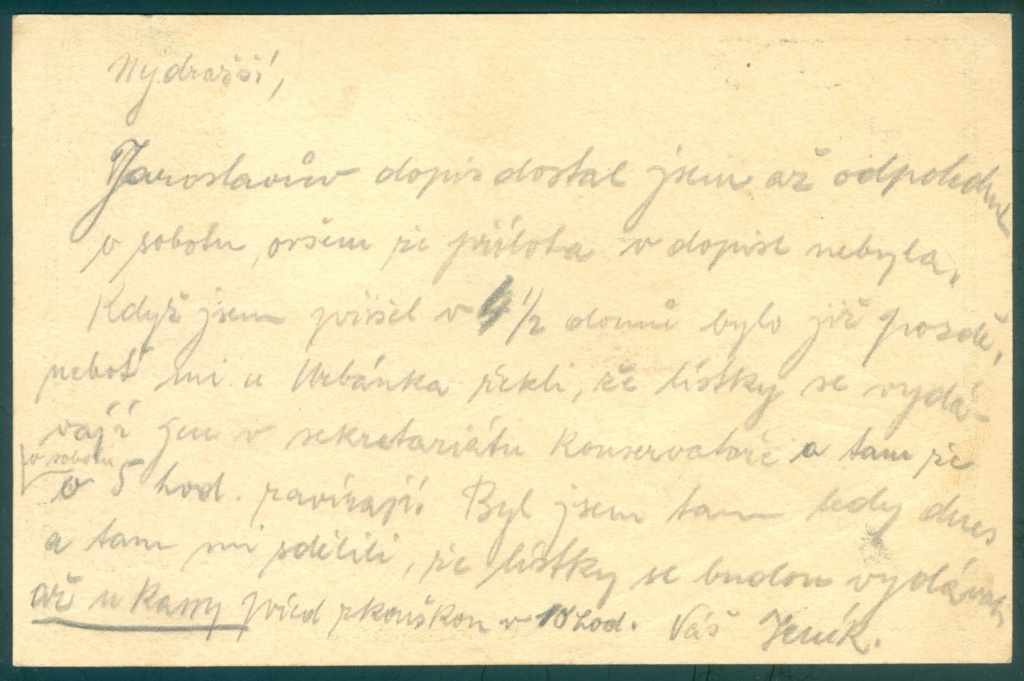 Nejdražší,
Jaroslavův dopis dostal jsem až odpoledne
v sobotu, ovšem že příloha v dopise nebyla.
Když jsem přišel v 4 1/2 domů bylo již pozdě,
neboť mi u Urbánka řekli, že lístky se vydá-
vají jen v sekretariátu konservatoře a tam že
v sobotu
v 5 hod. zavírají. Byl jsem tam tedy dnes
a tam mi sdělili, že lístky se budou vydávati
až u kasy před zkouškou v 10 hod. Váš Jeník.